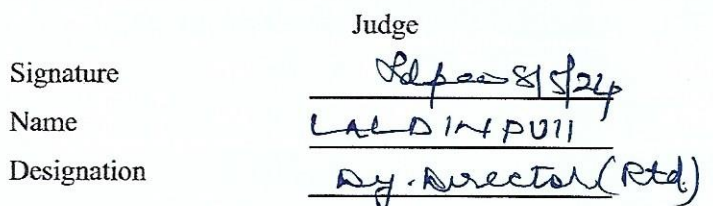 Judge
Signature 8/5/24
Name LALDINPUII
Designation Dy. Director (Rtd.)